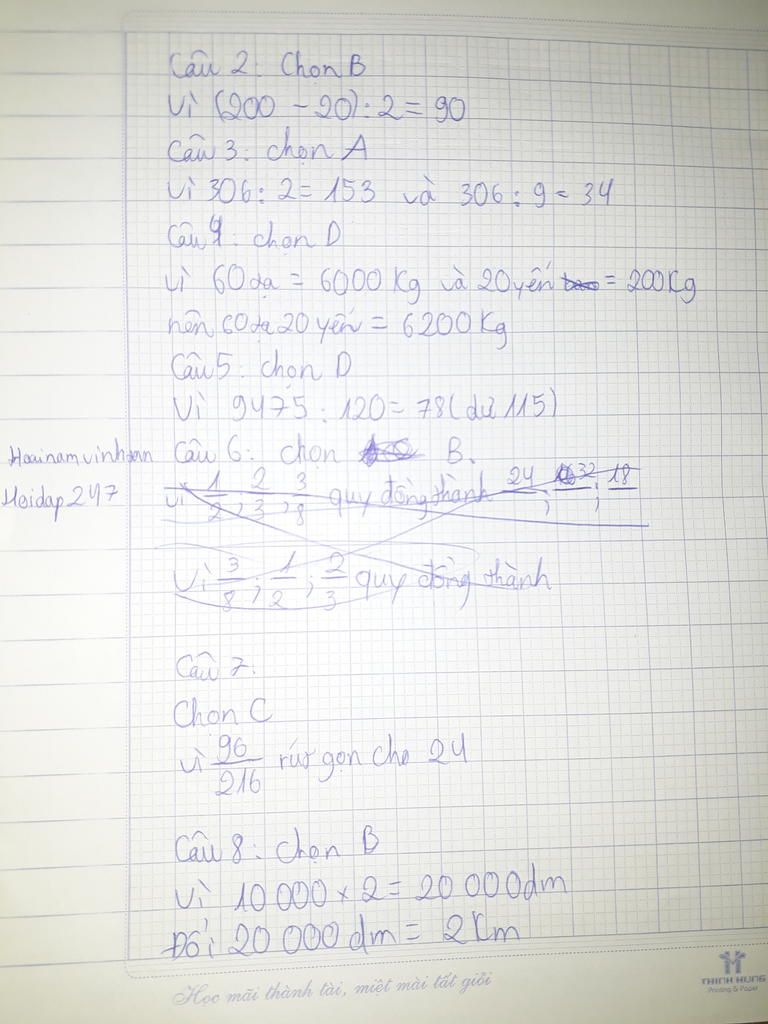 Câu 2: Chọn B
Vì (200 - 20) : 2 = 90
Câu 3: chọn A
Vì 306 : 2 = 153 và 306 : 9 = 34
Câu 4: chọn D
Vì 60 tạ = 6000 Kg và 20 yến = 200 Kg
nên 60 tạ 20 yến = 6200 Kg
Câu 5: chọn D
Vì 9475 : 120 = 78 (dư 115)
Câu 6: chọn B.
Hoidap247
Vì 1/2 ; 2/3 ; 3/8 quy đồng thành 24 ; 32 ; 18
Vì 3/8 ; 1/2 ; 2/3 quy đồng thành
Câu 7:
Chọn C
Vì 96/216 rút gọn cho 24
Câu 8: chọn B
Vì 10 000 x 2 = 20 000 dm
Đổi 20 000 dm = 2 Km
Học mãi thành tài, miệt mài tất giỏi
THINH HUNG
Printing & Paper